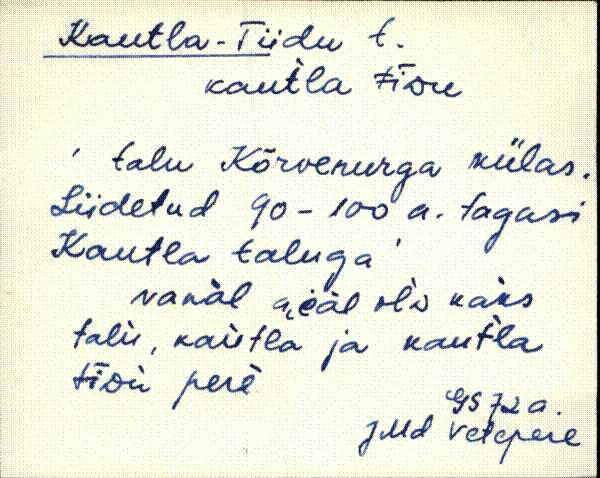 Kautla-Tiidu t.
kautla tīdu
' talu Kõrvenurga külas.
Liidetud 90-100 a. tagasi
Kautla taluga'
vanàl oli kaks
talu, kautla ja kautla
perè
GS 72 a.
JMd Vetepere